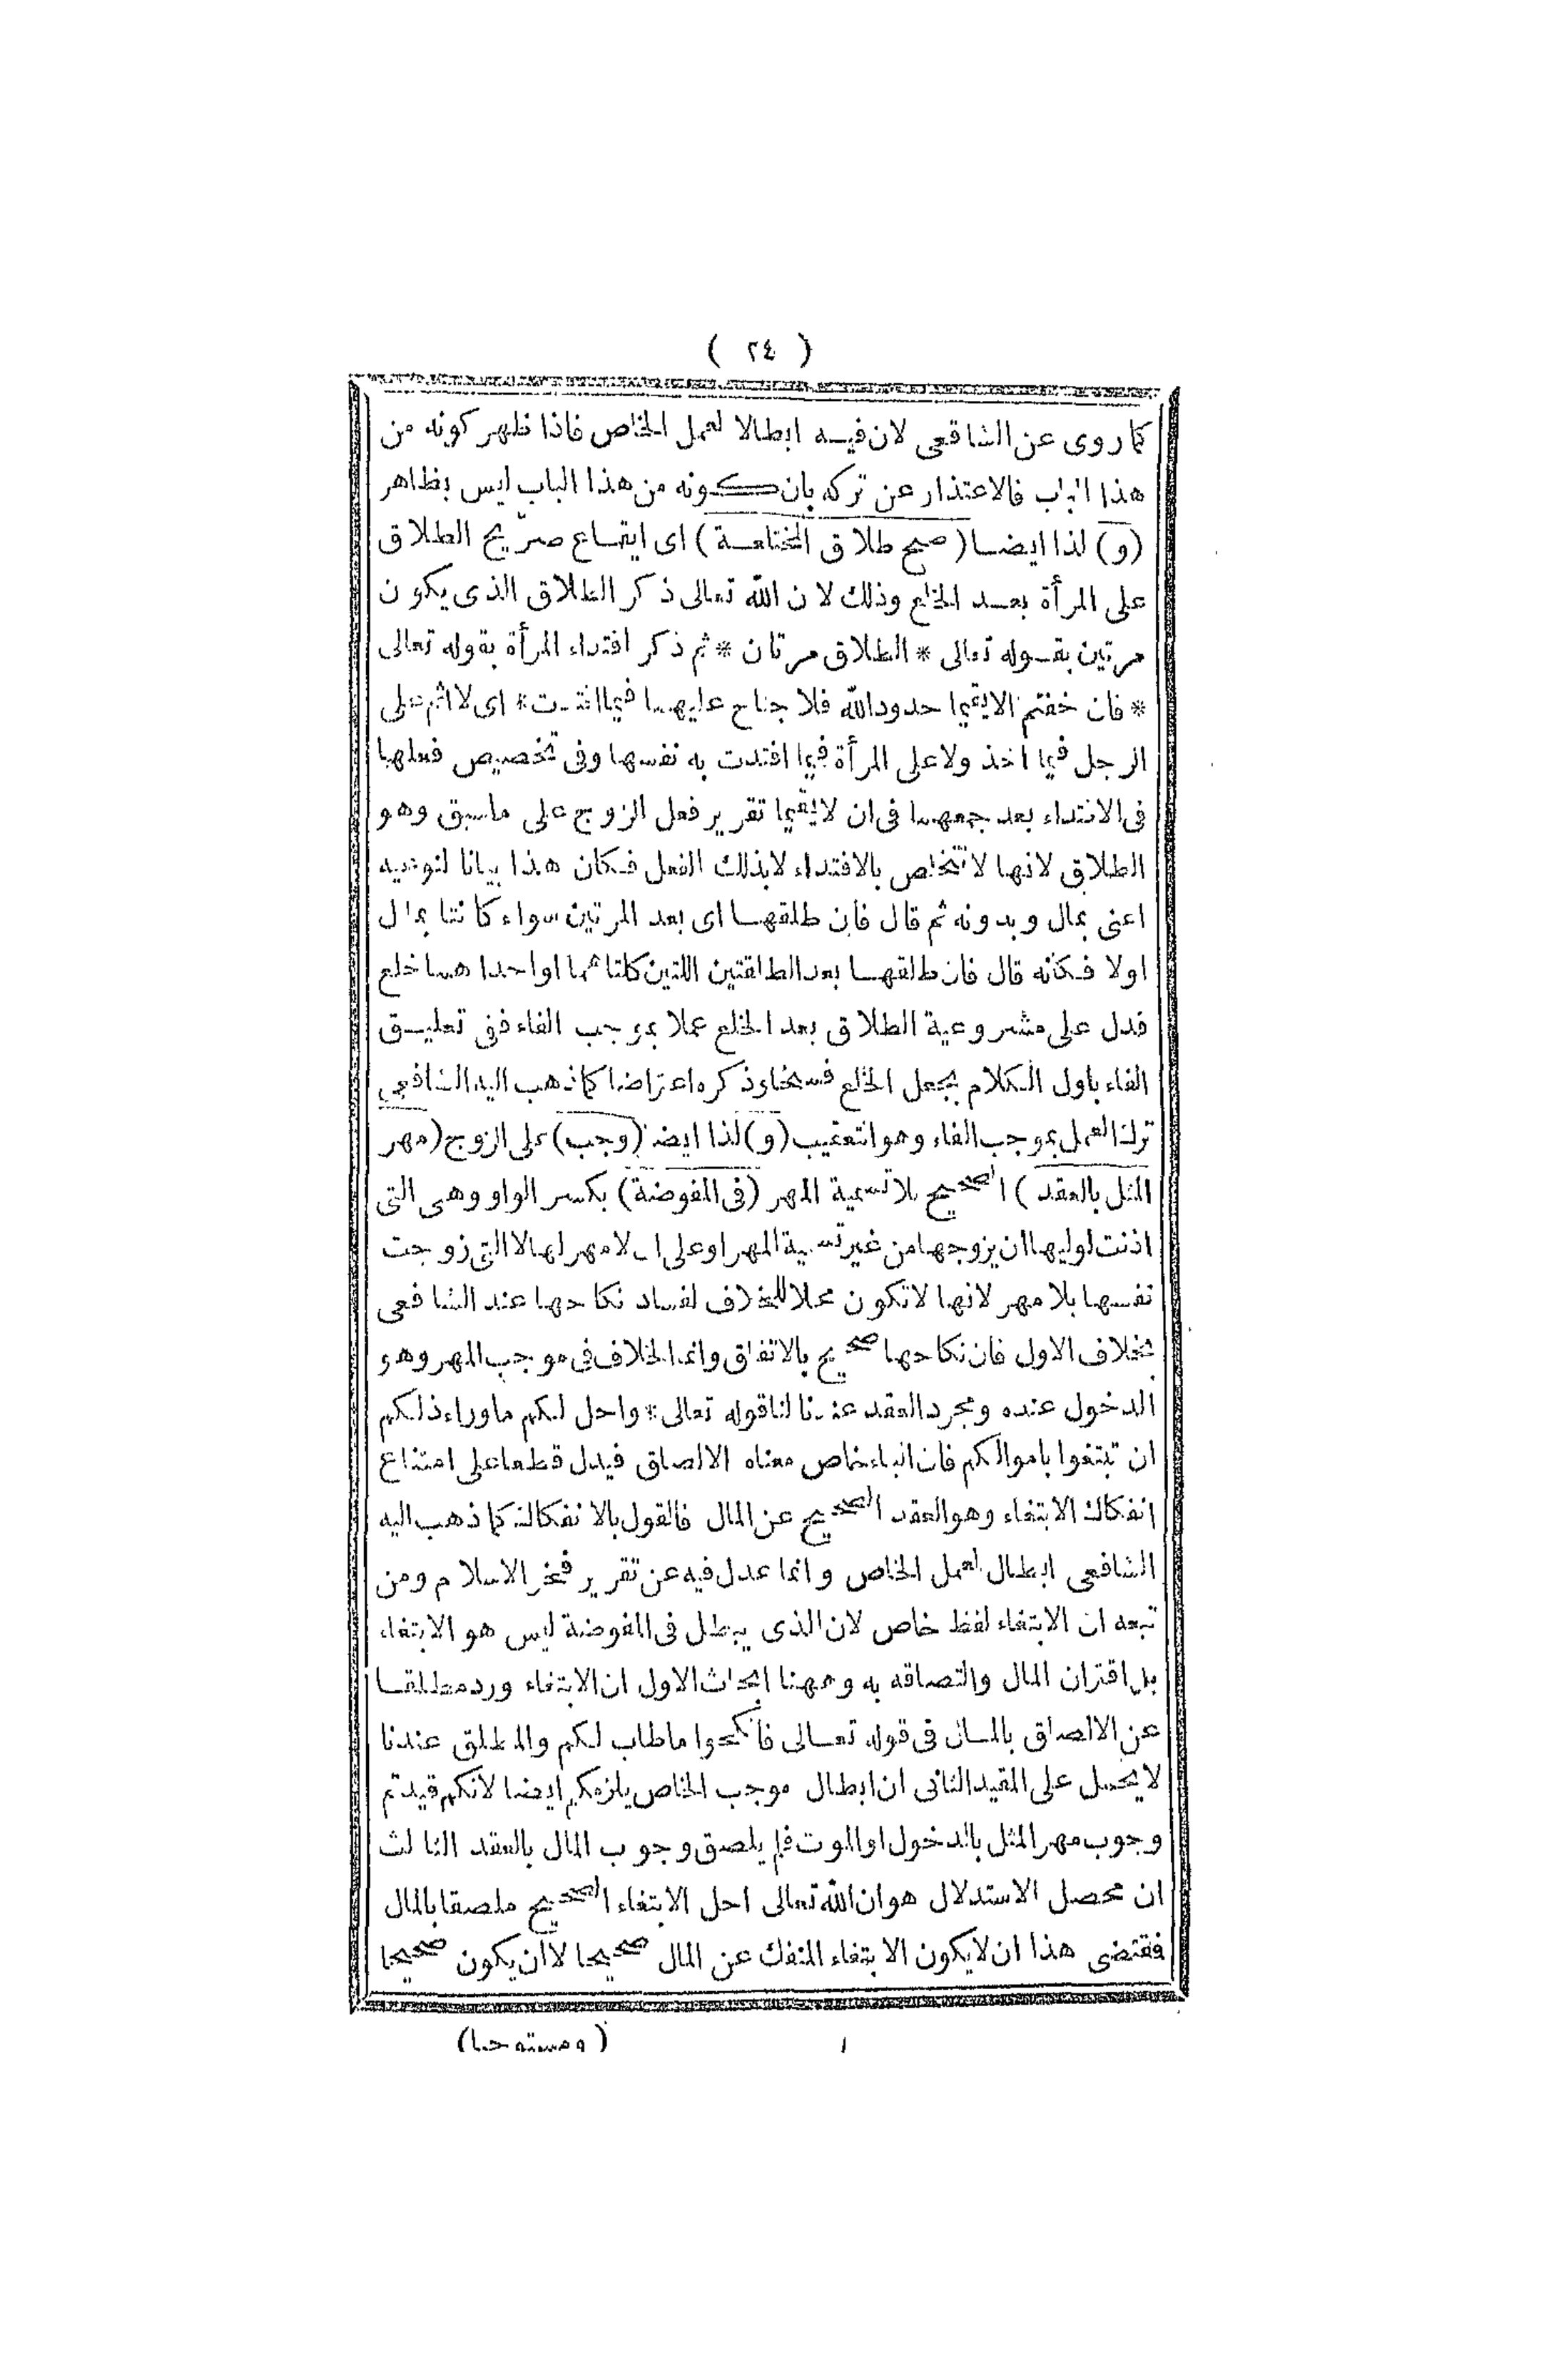 ( ٢٤ )
كما روى عن الشافعى لان فيه ابطالا لعمل الخاص فاذا ظهر كونه من
هذا الباب فالاعتذار عن تركه بان كونه من هذا الباب ليس بظاهر
(و) لذا ايضا (صح طلاق المختلعة) اى ايقاع صريح الطلاق
على المرأة بعد الخلع وذلك لان الله تعالى ذكر الطلاق الذى يكون
مرتين بقوله تعالى * الطلاق مرتان * ثم ذكر افتداء المرأة بقوله تعالى
* فان خفتم الا يقيما حدود الله فلا جناح عليهما فيما افتدت * اى لا اثم على
الرجل فيما اخذ ولا على المرأة فيما افتدت به نفسها وفى تخصيص فعلها
فى الافتداء بعد جمعهما فى ان لا يقيما تقرير فعل الزوج على ما سبق وهو
الطلاق لانها لا تتخلص بالافتداء لا بذلك الفعل فكان هذا بيانا لنوعيه
اعنى بمال وبدونه ثم قال فان طلقها اى بعد المرتين سواء كانتا بمال
اولا فكأنه قال فان طلقها بعد الطلقتين اللتين كلتاهما او احداهما خلع
فدل على مشروعية الطلاق بعد الخلع عملا بموجب الفاء ففى تعليق
الفاء باول الكلام بجعل الخلع فسخا وذكره اعتراضا كما ذهب اليه الشافعى
ترك العمل بموجب الفاء وهو التعقيب (و) لذا ايضا (وجب) على الزوج (مهر
المثل بالعقد) الصحيح بلا تسمية المهر (فى المفوضة) بكسر الواو وهى التى
اذنت لوليها ان يزوجها من غير تسمية المهر او على ان لا مهر لها لا التى زوجت
نفسها بلا مهر لانها لا تكون محلا للخلاف لفساد نكاحها عند الشافعى
بخلاف الاول فان نكاحها صحيح بالاتفاق وانما الخلاف فى موجب المهر وهو
الدخول عنده ومجرد العقد عندنا لنا قوله تعالى * واحل لكم ما وراء ذلكم
ان تبتغوا باموالكم فان الباء خاص معناه الالصاق فيدل قطعا على امتناع
انفكاك الابتغاء وهو العقد الصحيح عن المال فالقول بالانفكاك كما ذهب اليه
الشافعى ابطال لعمل الخاص وانما عدل فيه عن تقرير فخر الاسلام ومن
تبعه ان الابتغاء لفظ خاص لان الذى يبطل فى المفوضة ليس هو الابتغاء
بل اقتران المال والتصاقه به وههنا ابحاث الاول ان الابتغاء ورد مطلقا
عن الالصاق بالمال فى قوله تعالى فانكحوا ما طاب لكم والمطلق عندنا
لا يحمل على المقيد الثانى ان ابطال موجب الخاص يلزمكم ايضا لانكم قيدتم
وجوب مهر المثل بالدخول او الموت فلم يلصق وجوب المال بالعقد الثالث
ان محصل الاستدلال هو ان الله تعالى احل الابتغاء الصحيح ملصقا بالمال
فقتضى هذا ان لا يكون الابتغاء المنفك عن المال صحيحا لا ان يكون صحيحا